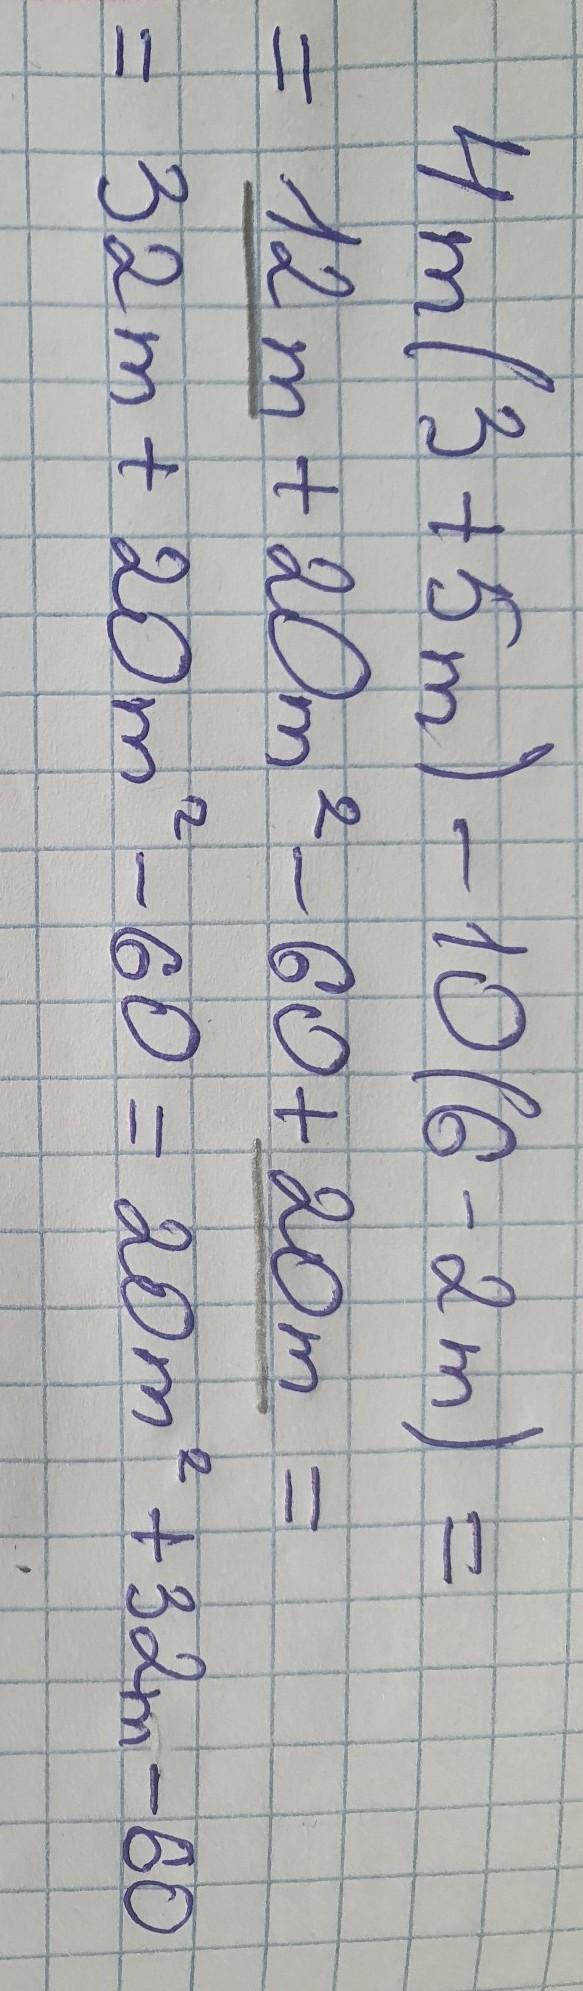 4m(3+5m)-10(6-2m)=
=12m+20m²-60+20m=
=32m+20m²-60=20m²+32m-60